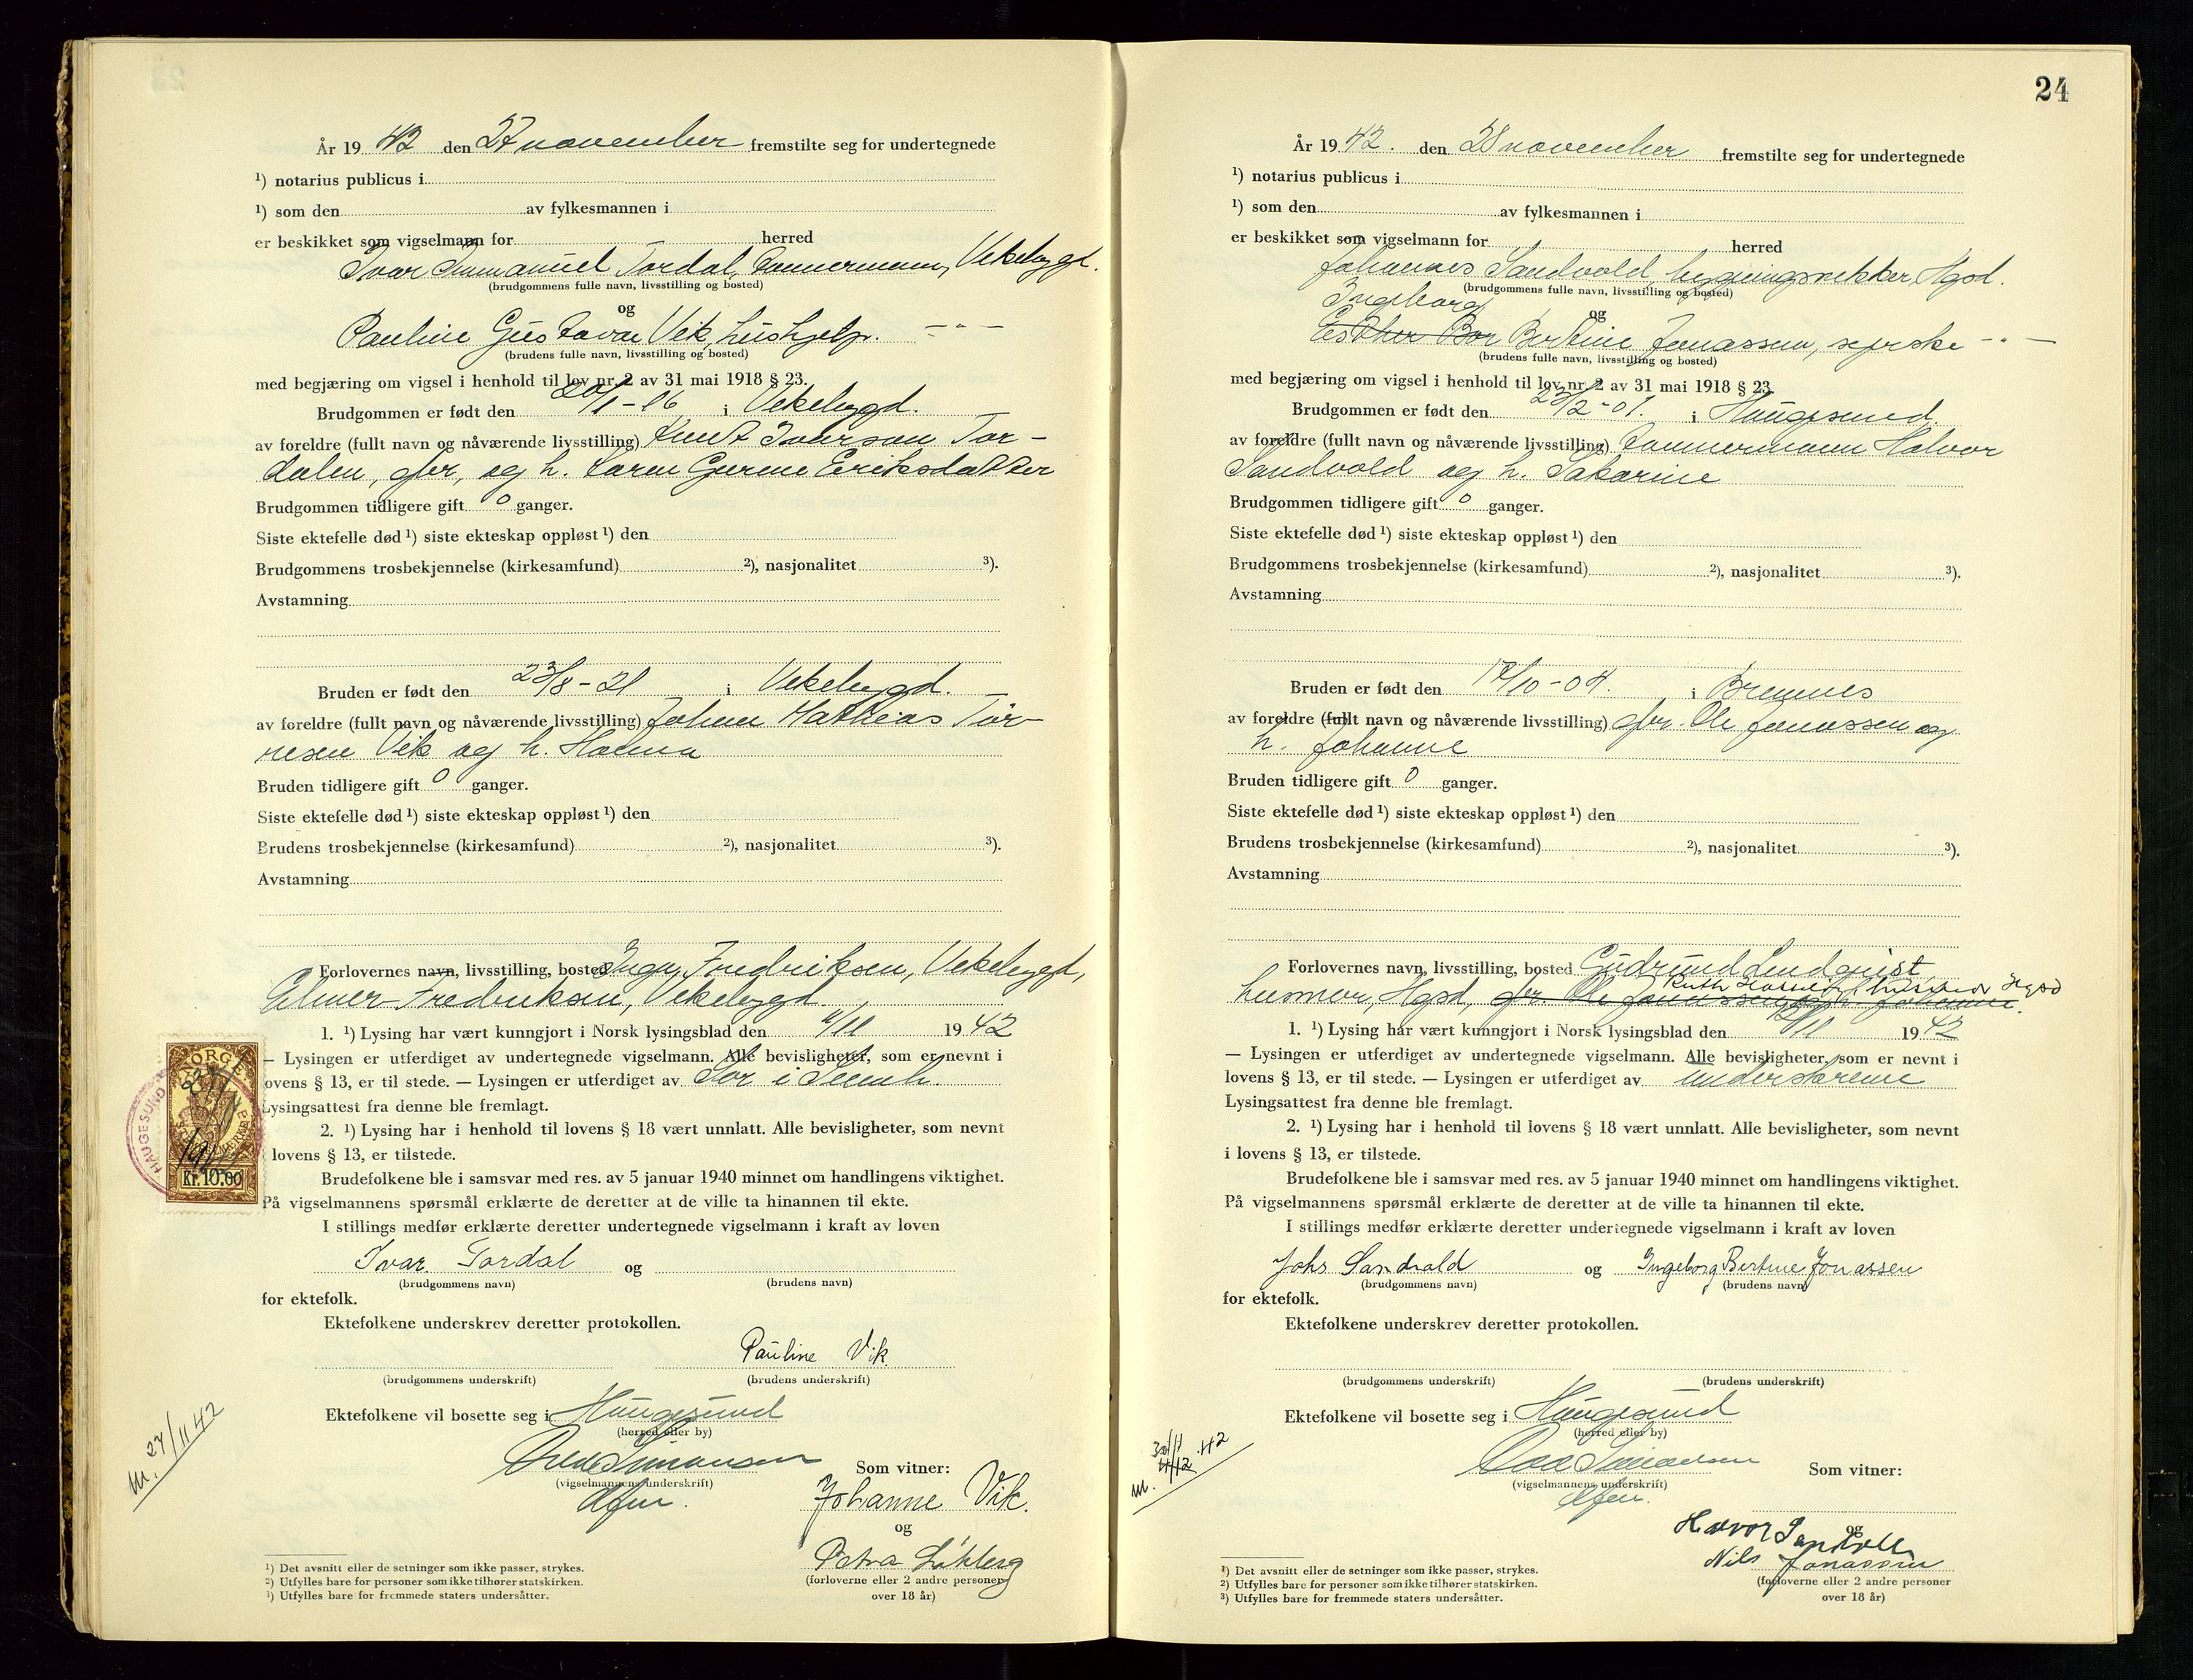 År 19 42 den 27 november fremstilte seg for undertegnede
¹) notarius publicus i
¹) som den av fylkesmannen i
er beskikket som vigselmann for herred
Ivar Immanuel Tordal, tømmermann, Vikebygd.
(brudgommens fulle navn, livsstilling og bosted)
og
Pauline Gustava Vik, hushjelp. — " —
(brudens fulle navn, livsstilling og bosted)
med begjæring om vigsel i henhold til lov nr. 2 av 31 mai 1918 § 23.
Brudgommen er født den 20/1-16 i Vikebygd.
av foreldre (fullt navn og nåværende livsstilling) Knut Iversen Tor-
dalen, gbr, og h. Karen Gurine Eriksdatter
Brudgommen tidligere gift 0 ganger.
Siste ektefelle død ¹) siste ekteskap oppløst ¹) den
Brudgommens trosbekjennelse (kirkesamfund) ²), nasjonalitet ³).
Avstamning
Bruden er født den 23/8-21 i Vikebygd.
av foreldre (fullt navn og nåværende livsstilling) Johan Mathias Tør-
resen Vik og h. Hanna
Bruden tidligere gift 0 ganger.
Siste ektefelle død ¹) siste ekteskap oppløst ¹) den
Brudens trosbekjennelse (kirkesamfund) ²), nasjonalitet ³).
Avstamning
Forlovernes navn, livsstilling, bosted Inga Fredriksen, Vikebygd,
Elmer Fredriksen, Vikebygd.
1. ¹) Lysing har vært kunngjort i Norsk lysingsblad den 4/11 19 42
— Lysingen er utferdiget av undertegnede vigselmann. Alle bevisligheter, som er nevnt i
lovens § 13, er til stede. — Lysingen er utferdiget av Sor i Sunnh.
Lysingsattest fra denne ble fremlagt.
2. ¹) Lysing har i henhold til lovens § 18 vært unnlatt. Alle bevisligheter, som nevnt
lovens § 13, er tilstede.
Brudefolkene ble i samsvar med res. av 5 januar 1940 minnet om handlingens viktighet.
På vigselmannens spørsmål erklærte de deretter at de ville ta hinannen til ekte.
I stillings medfør erklærte deretter undertegnede vigselmann i kraft av loven
Ivar Tordal og
(brudgommens navn) (brudens navn)
for ektefolk.
Ektefolkene underskrev deretter protokollen.
Pauline Vik
(brudgommens underskrift) (brudens underskrift)
Ektefolkene vil bosette seg i Haugesund
(herred eller by)
Simonsen
(vigselmannens underskrift)
Som vitner:
Johanne Vik.
og
Petra Løkberg
(forloverne eller 2 andre personer
over 18 år)
¹) Det avsnitt eller de setninger som ikke passer, strykes.
²) Utfylles bare for personer som ikke tilhører statskirken.
³) Utfylles bare for fremmede staters undersåtter.
m. 27/11 42
NORGE
HAUGESUND
Kr. 10.00
24
År 19 42. den 28 november fremstilte seg for undertegnede
¹) notarius publicus i
¹) som den av fylkesmannen i
er beskikket som vigselmann for herred
Johannes Sandvold, bygningssnekker, Hgsd.
(brudgommens fulle navn, livsstilling og bosted)
Ingeborg
og
Esther Bor Bertine Jonassen, syerske — " —
(brudens fulle navn, livsstilling og bosted)
med begjæring om vigsel i henhold til lov nr. 2 av 31 mai 1918 § 23
Brudgommen er født den 23/2-01. i Haugesund.
av foreldre (fullt navn og nåværende livsstilling) tømmermann Halvor
Sandvold og h. Sakarine
Brudgommen tidligere gift 0 ganger.
Siste ektefelle død ¹) siste ekteskap oppløst ¹) den
Brudgommens trosbekjennelse (kirkesamfund) ²), nasjonalitet ³).
Avstamning
Bruden er født den 17/10-04. i Bremnes
av foreldre (fullt navn og nåværende livsstilling) gbr. Ole Jonassen og
h. Johanne
Bruden tidligere gift 0 ganger.
Siste ektefelle død ¹) siste ekteskap oppløst ¹) den
Brudens trosbekjennelse (kirkesamfund) ²), nasjonalitet ³).
Avstamning
Forlovernes navn, livsstilling, bosted Gudrund Lindquist
Ruth husmor Hgsd
husmor, Hgsd, gbr. Ole Jonassen og h. Johanne.
1. ¹) Lysing har vært kunngjort i Norsk lysingsblad den /11 19 42
— Lysingen er utferdiget av undertegnede vigselmann. Alle bevisligheter, som er nevnt i
lovens § 13, er til stede. — Lysingen er utferdiget av underskrevne
Lysingsattest fra denne ble fremlagt.
2. ¹) Lysing har i henhold til lovens § 18 vært unnlatt. Alle bevisligheter, som nevnt
i lovens § 13, er tilstede.
Brudefolkene ble i samsvar med res. av 5 januar 1940 minnet om handlingens viktighet.
På vigselmannens spørsmål erklærte de deretter at de ville ta hinannen til ekte.
I stillings medfør erklærte deretter undertegnede vigselmann i kraft av loven
Johs Sandvold og Ingeborg Bertine Jonassen
(brudgommens navn) (brudens navn)
for ektefolk.
Ektefolkene underskrev deretter protokollen.
(brudgommens underskrift) (brudens underskrift)
Ektefolkene vil bosette seg i Haugesund
(herred eller by)
Simonsen
(vigselmannens underskrift)
Som vitner:
Halvor Sandvold
og
Nils Jonassen
(forloverne eller 2 andre personer
over 18 år)
¹) Det avsnitt eller de setninger som ikke passer, strykes.
²) Utfylles bare for personer som ikke tilhører statskirken.
³) Utfylles bare for fremmede staters undersåtter.
m. 30/11 42